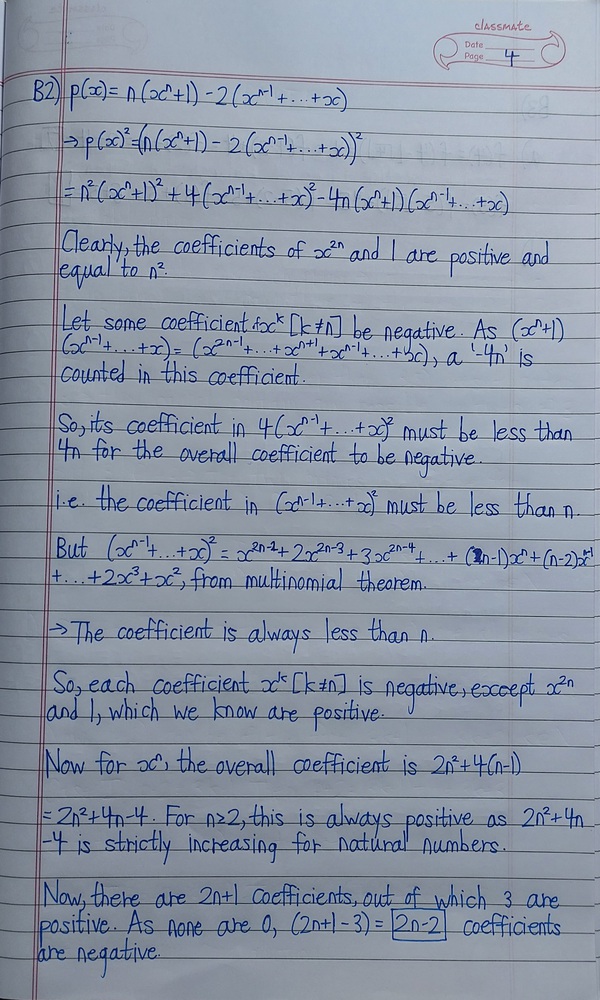 classmate
Date
Page 4
B2) p(x) = n(xⁿ+1) - 2(xⁿ⁻¹+...+x)
→ p(x)² = (n(xⁿ+1) - 2(xⁿ⁻¹+...+x))²
= n²(xⁿ+1)² + 4(xⁿ⁻¹+...+x)² - 4n(xⁿ+1)(xⁿ⁻¹+...+x)
Clearly, the coefficients of x²ⁿ and 1 are positive and
equal to n².
Let some coefficient of xᵏ [k≠n] be negative. As (xⁿ+1)
(xⁿ⁻¹+...+x) = (x²ⁿ⁻¹+...+xⁿ⁺¹+xⁿ⁻¹+...+x), a '-4n' is
counted in this coefficient.
So, its coefficient in 4(xⁿ⁻¹+...+x)² must be less than
4n for the overall coefficient to be negative.
i.e. the coefficient in (xⁿ⁻¹+...+x)² must be less than n.
But (xⁿ⁻¹+...+x)² = x²ⁿ⁻²+2x²ⁿ⁻³+3x²ⁿ⁻⁴+...+(n-1)xⁿ+(n-2)xⁿ⁻¹
+...+2x³+x², from multinomial theorem.
→ The coefficient is always less than n.
So, each coefficient xᵏ [k≠n] is negative, except x²ⁿ
and 1, which we know are positive.
Now for xⁿ, the overall coefficient is 2n²+4(n-1)
= 2n²+4n-4. For n≥2, this is always positive as 2n²+4n
-4 is strictly increasing for natural numbers.
Now, there are 2n+1 coefficients, out of which 3 are
positive. As none are 0, (2n+1-3) = 2n-2 coefficients
are negative.